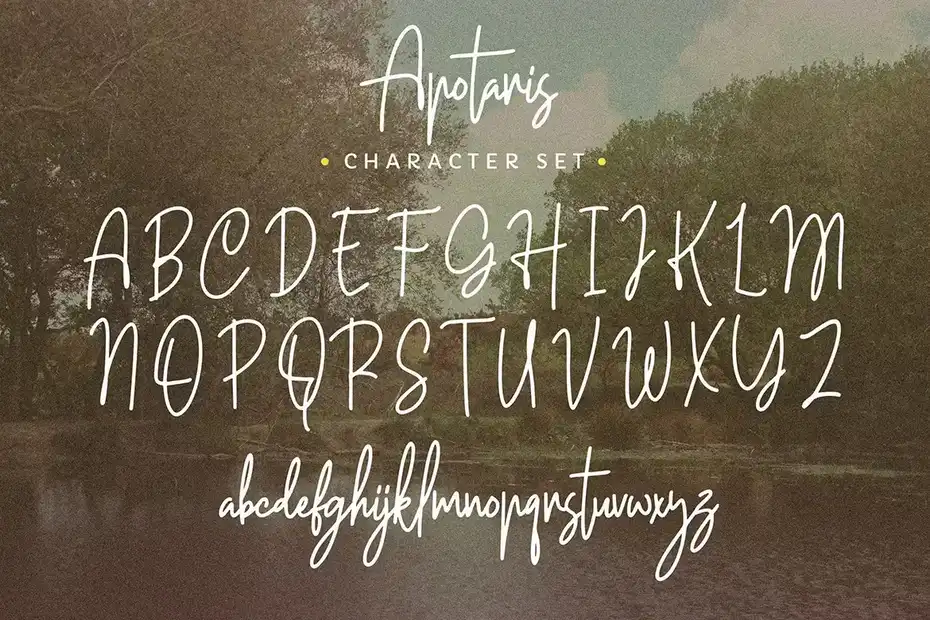 Apotaris
• CHARACTER SET •
ABCDEFGHIJKLM
NOPQRSTUVWXYZ
abcdefghijklmnopqrstuvwxyz